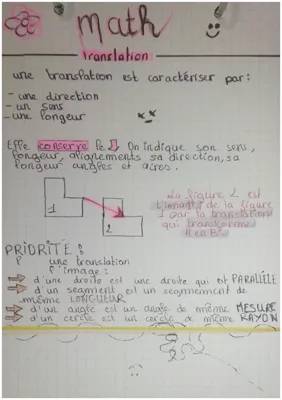 math
translation
une translation est caractériser par:
- une direction
- un sens
- une longeur
Elle conserve le On indique son sens,
longeur, alignements sa direction, sa
longeur angles et aires.
1
2
La figure 2 est
l'image de la figure
1 par la translation
qui transforme
A en B
PRIORITÉ!
une translation
l'image:
d'une droite est une droite qui est PARALLÈLE
d'un segment est un segmement de
même LONGUEUR
d'un angle est un angle de même MESURE
d'un cercle est un cercle de même RAYON